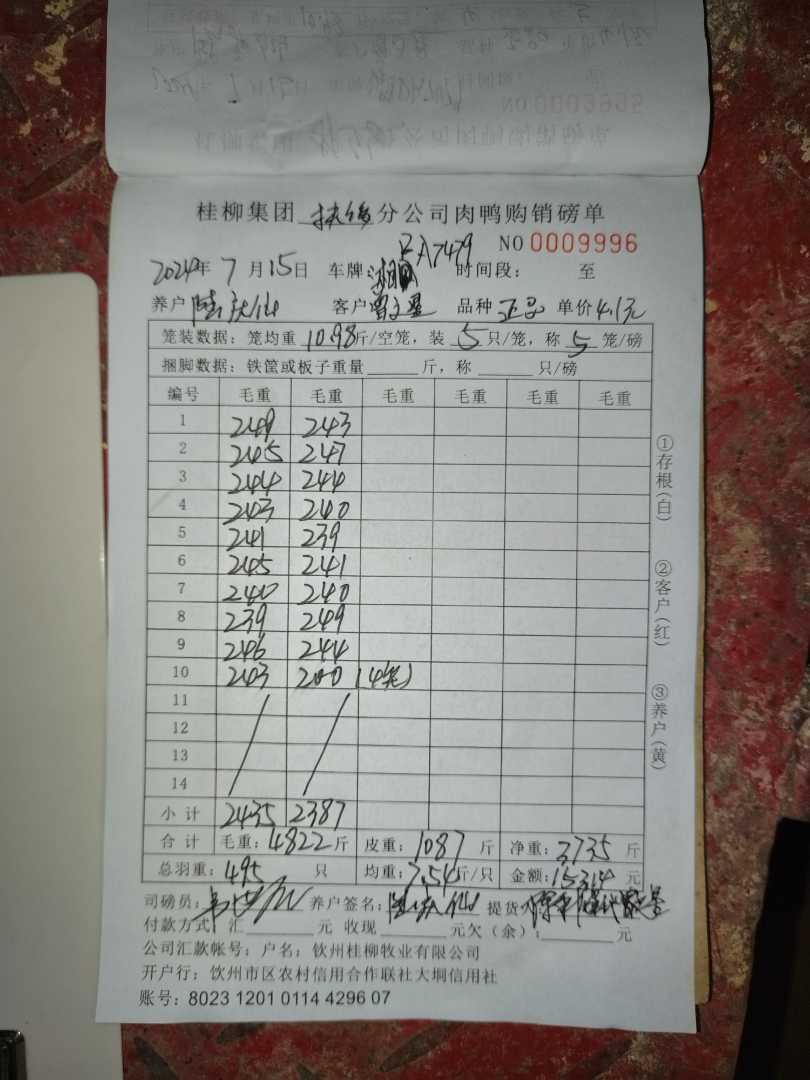 桂柳集团 扶绥 分公司肉鸭购销磅单
NO 0009996
2024年 7 月 15 日 车牌: A7479 时间段: 至
养户 客户 品种 正品 单价 4.1元
笼装数据: 笼均重 10.98 斤/空笼, 装 5 只/笼, 称 5 笼/磅
捆脚数据: 铁筐或板子重量 斤, 称 只/磅
编号 毛重 毛重 毛重 毛重 毛重 毛重
1 249 243
2 245 247
3 244 244
4 243 240
5 241 239
6 245 241
7 240 240
8 239 249
9 246 244
10 243 200 (4笼)
11
12
13
14
小计 2435 2387
合计 毛重: 4822 斤 皮重: 1087 斤 净重: 3735 斤
总羽重: 495 只 均重: 7.54 斤/只 金额: 15314 元
司磅员: 养户签名: 提货人
付款方式 汇 元 收现 元欠(余): 元
公司汇款帐号: 户名: 钦州桂柳牧业有限公司
开户行: 钦州市区农村信用合作联社大垌信用社
账号: 8023 1201 0114 4296 07
①存根(白)
②客户(红)
③养户(黄)